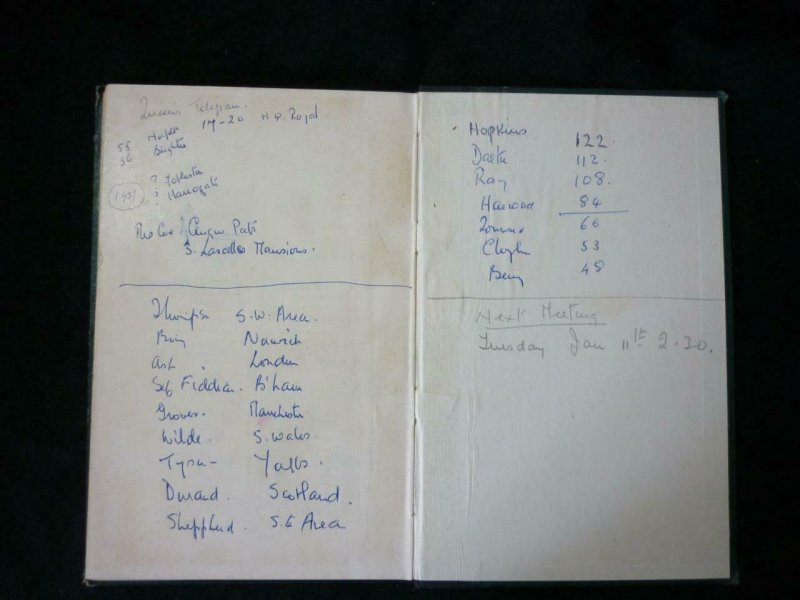 Queens Telegram.
19-20 H.Q. Royal
55
56 Brighton
? Folkestone
? Harrogate
1957
3. Lascelles Mansions.
Thompson S.W. Area.
Norwich
Ash. London
Fiddian. B'ham
Groves. Manchester
Wilde. S. Wales.
Tyson - Yorks.
Durand. Scotland.
Shepherd. S.E Area
Hopkins 122.
112.
Ray 108.
Harwood 84
66
53
Berry 48
Next Meeting
Tuesday Jan 11th 2.30.